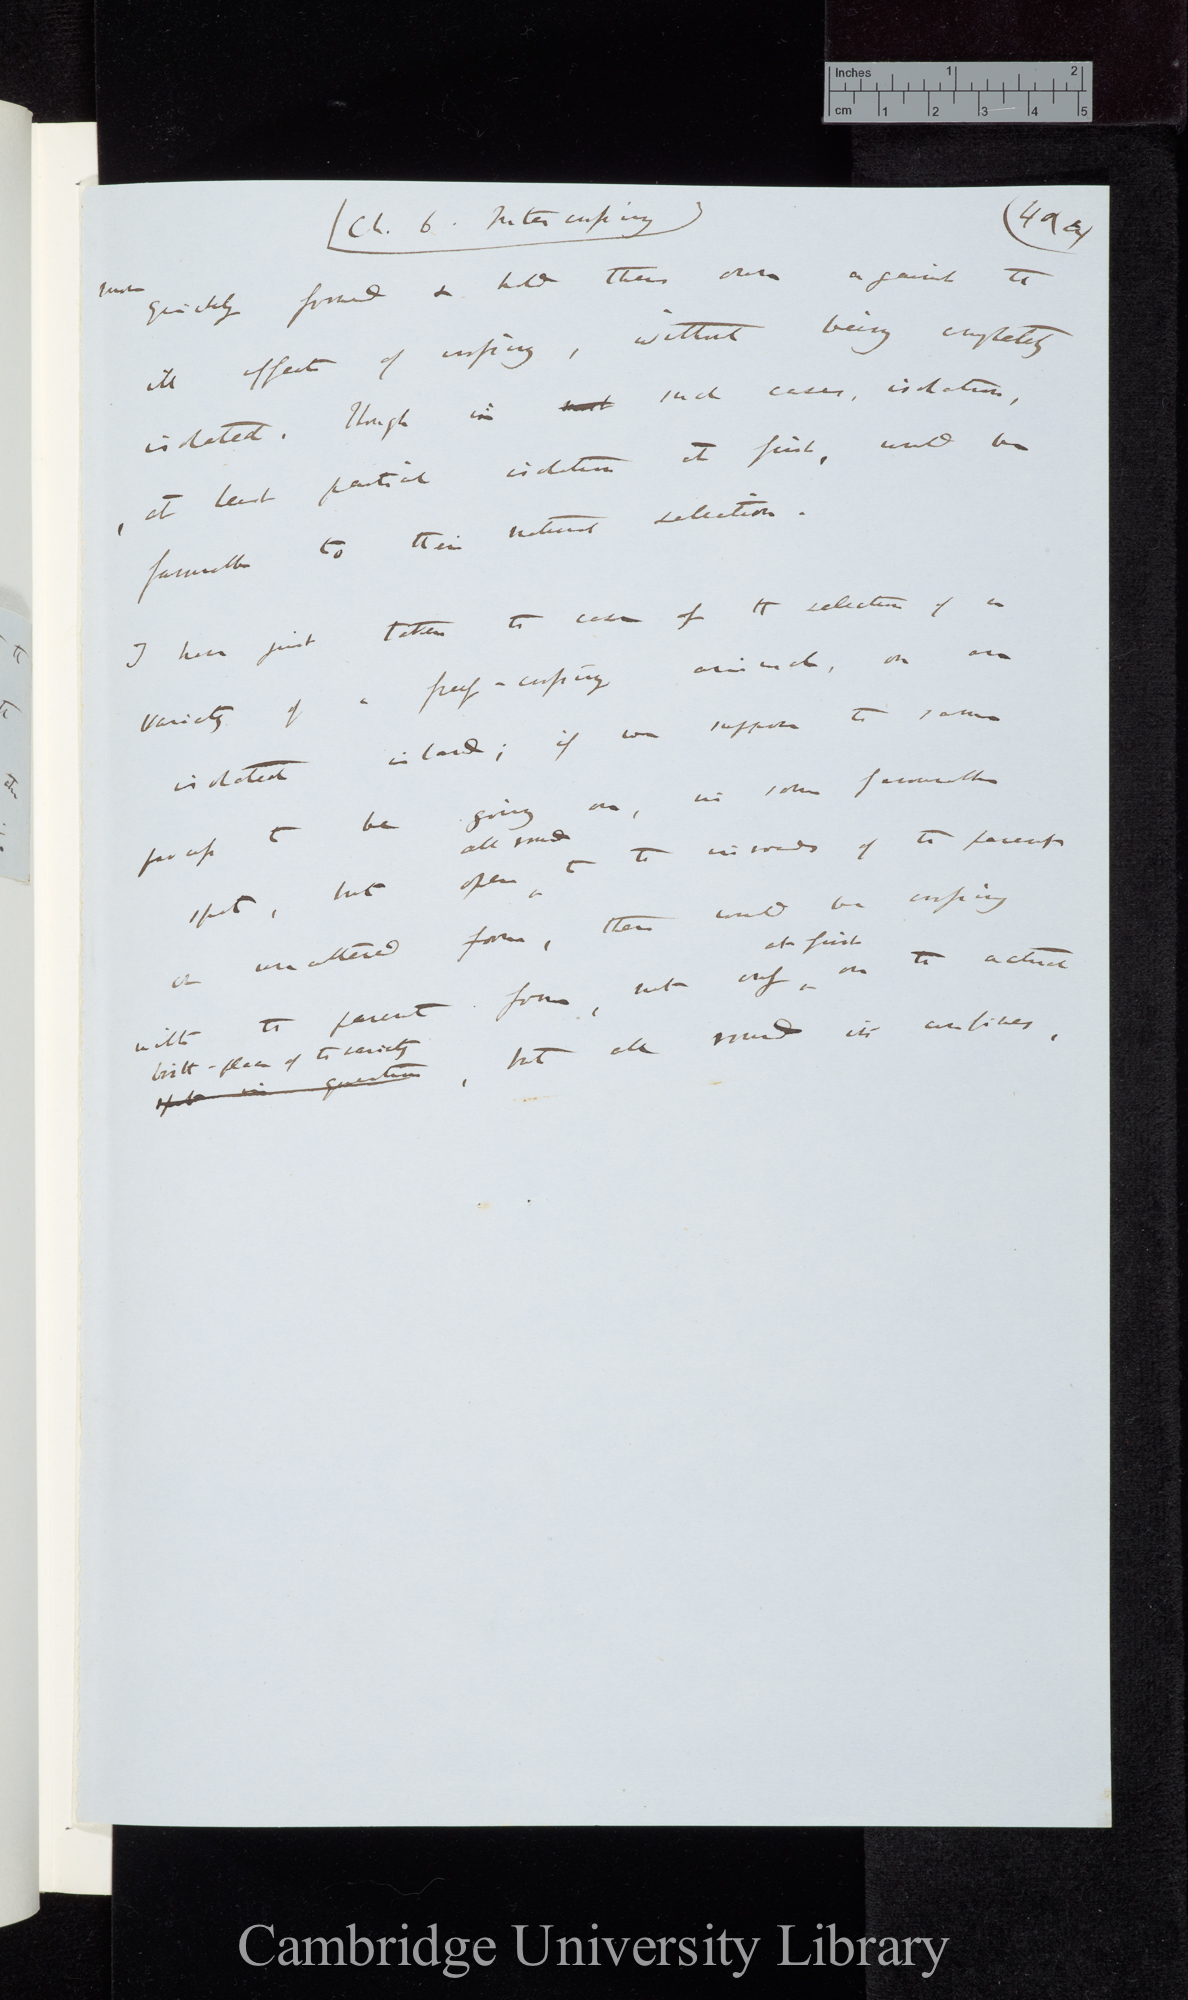 Inches 1 2
cm 1 2 3 4 5
(Ch. 6. Intercrossing) (49 a
quickly formed & hold their own against the
ill effects of crossing, without being completely
isolated. Though in most such cases, isolation,
, at least partial isolation at first, would be
favourable to their natural selection.
I have just taken the case of the selection of a
variety of a freely-crossing animal, on an
isolated island; if we suppose the same
process to be going on, in some favourable
all round
spot, but open, to the inroads of the parent
or unaltered form, there would be crossing
at first
with the parent form, not only, on the actual
birth-place of the variety
spot in question, but all round its confines,
Cambridge University Library